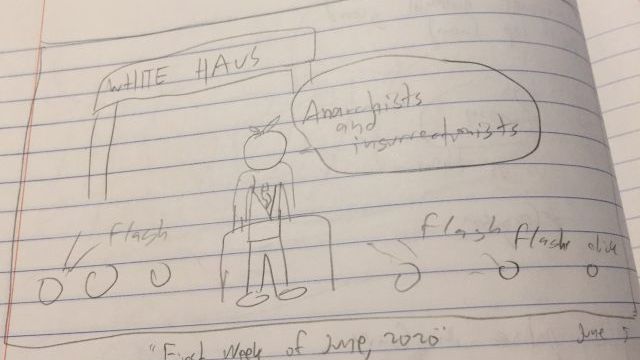 WHITE HAUS
Anarchists
and
insurrectionists
flash
flash flash click
"First Week of June, 2020"
June 5